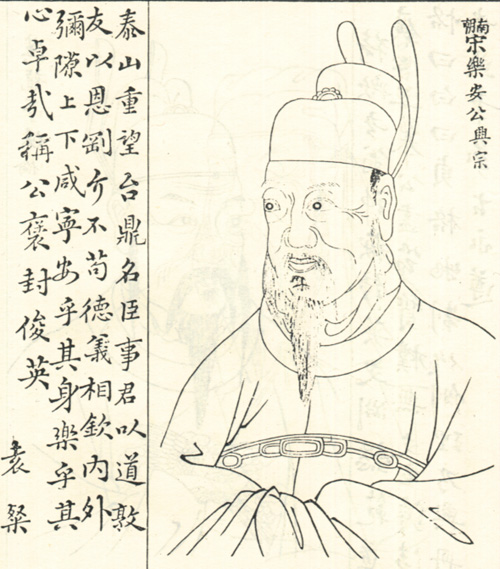 南朝宋樂安公興宗
泰山重望台鼎名臣事君以道敦
友以恩剛介不苟德義相欽内外
彌隙上下咸寧安乎其身樂乎其
心卓哉稱公褒封俊英
袁粲